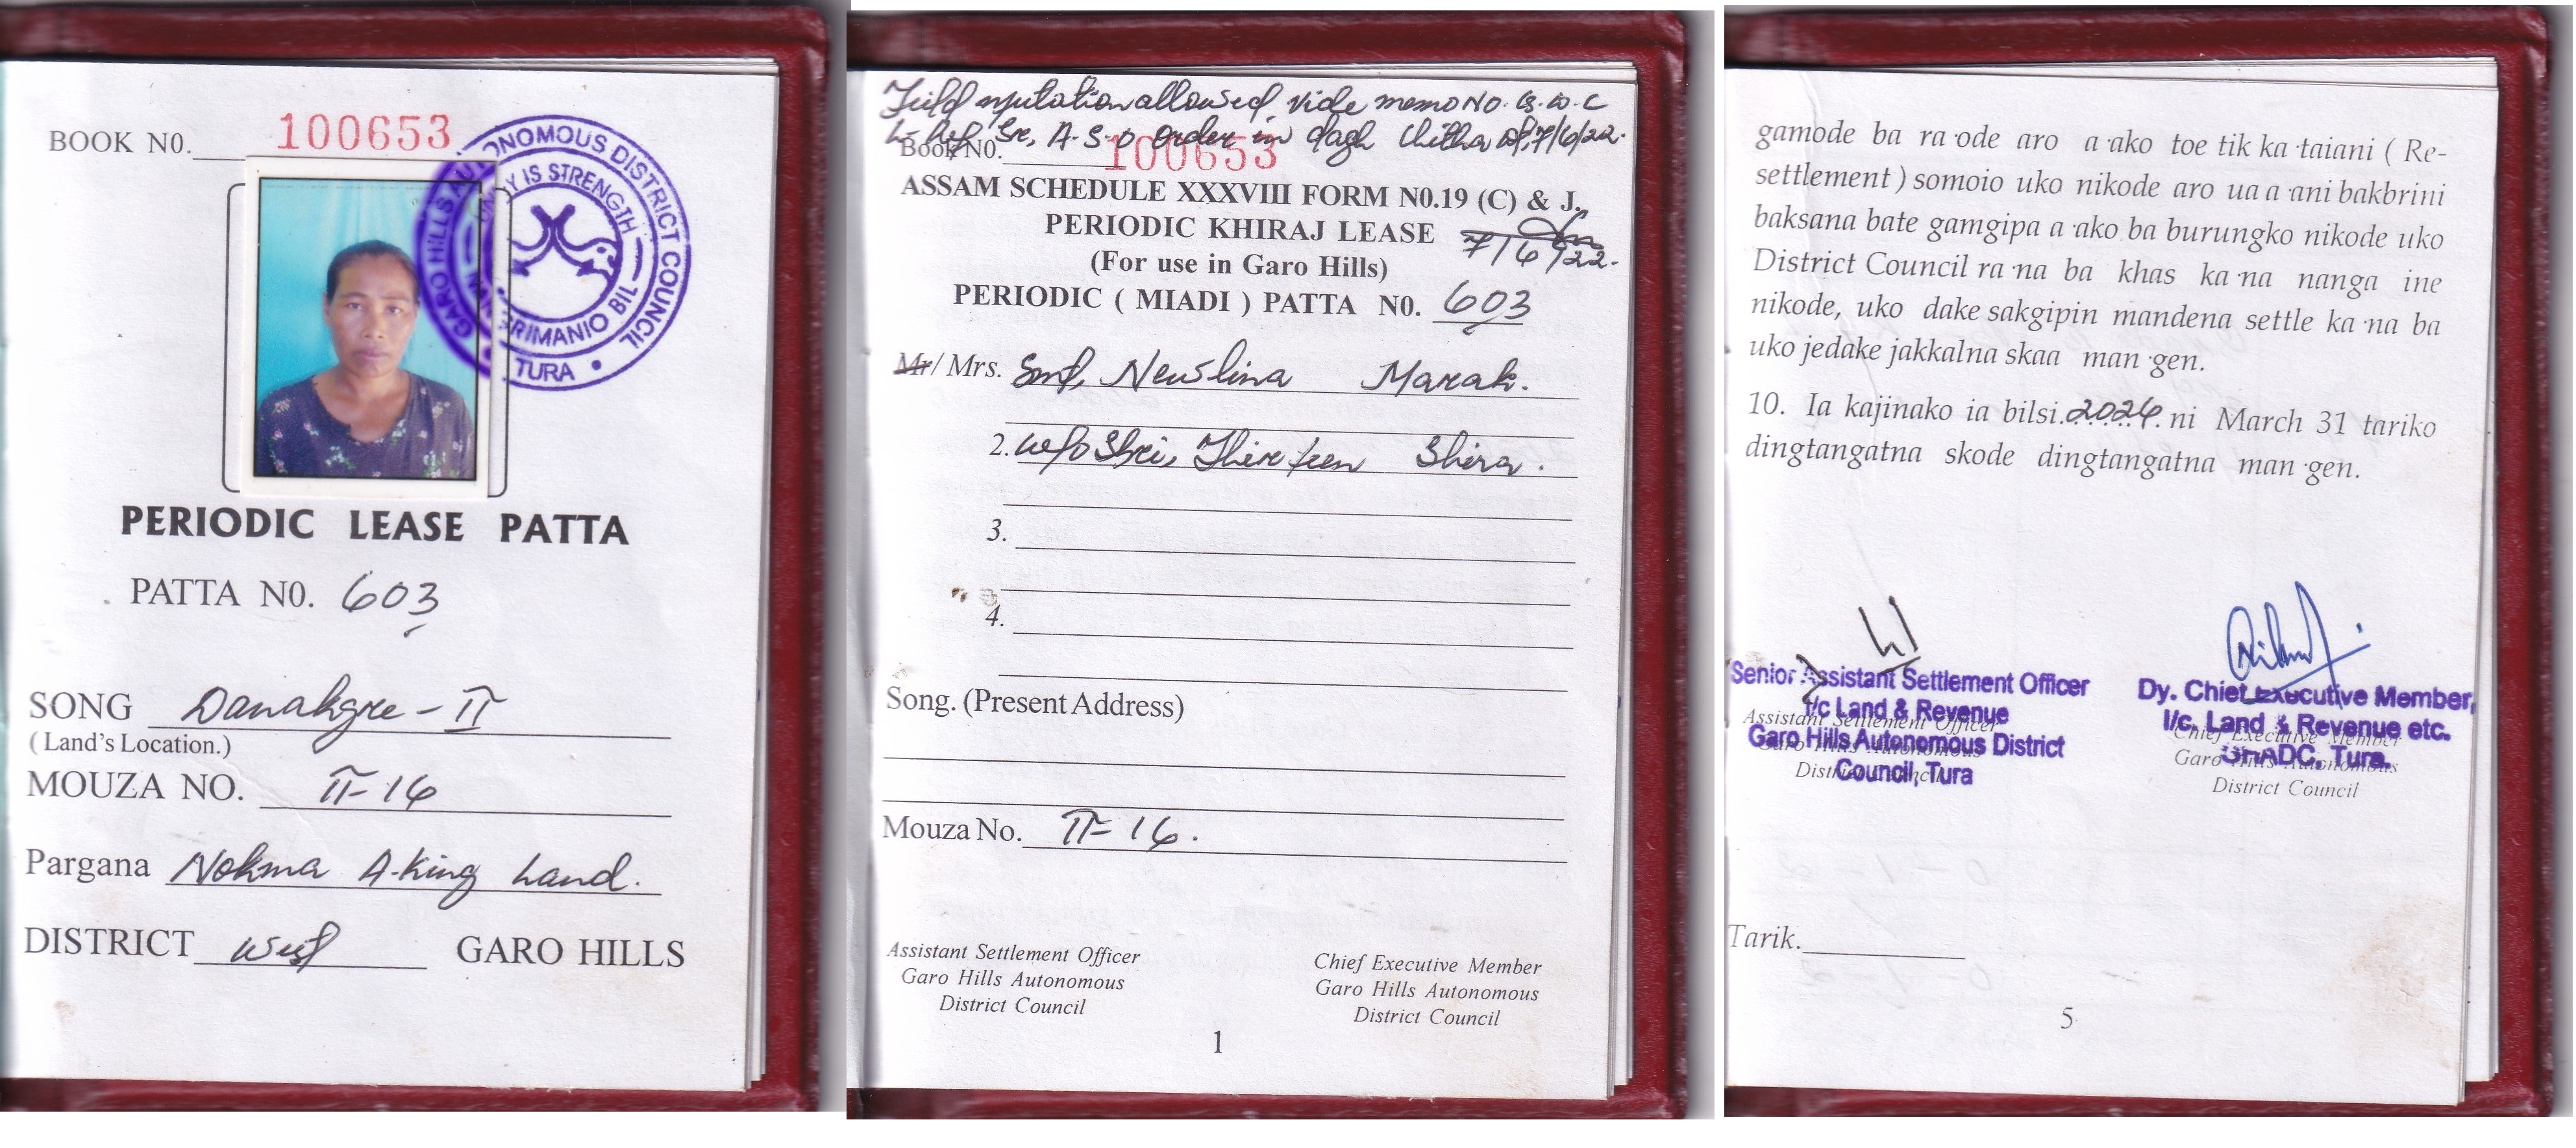 BOOK N0. 100653
GARO HILLS AUTONOMOUS DISTRICT COUNCIL
UNITY IS STRENGTH
RIMANIO BIL
• TURA •
PERIODIC LEASE PATTA
PATTA N0. 603
SONG Danakgre - II
( Land's Location.)
MOUZA NO. II-16
Pargana Nokma A-King Land.
DISTRICT West GARO HILLS
Field mutation allowed vide memo NO. G.W.C
Sr, A.S.O order in dagh Chitha 7/6/22.
Book N0. 100653
ASSAM SCHEDULE XXXVIII FORM N0.19 (C) & J.
PERIODIC KHIRAJ LEASE
7/6/22.
(For use in Garo Hills)
PERIODIC ( MIADI ) PATTA N0. 603
Mr/ Mrs. Smt, Newslina Marak.
2. w/o Shri, Shira.
3.
4.
Song. (Present Address)
Mouza No. II-16.
Assistant Settlement Officer
Garo Hills Autonomous
District Council
Chief Executive Member
Garo Hills Autonomous
District Council
1
gamode ba ra·ode aro a·ako toe tik ka·taiani ( Re-
settlement ) somoio uko nikode aro ua a·ani bakbrini
baksana bate gamgipa a·ako ba burungko nikode uko
District Council ra·na ba khas ka·na nanga ine
nikode, uko dake sakgipin mandena settle ka·na ba
uko jedake jakkalna skaa man·gen.
10. Ia kajinako ia bilsi. ni March 31 tariko
dingtangatna skode dingtangatna man·gen.
Senior Assistant Settlement Officer
I/c Land & Revenue
Garo Hills Autonomous District
Council, Tura
Assistant Settlement Officer
Garo Hills Autonomous
District Council
Dy. Chief Executive Member,
I/c, Land & Revenue etc.
GHADC, Tura.
Chief Executive Member
Garo Hills Autonomous
District Council
Tarik.
5